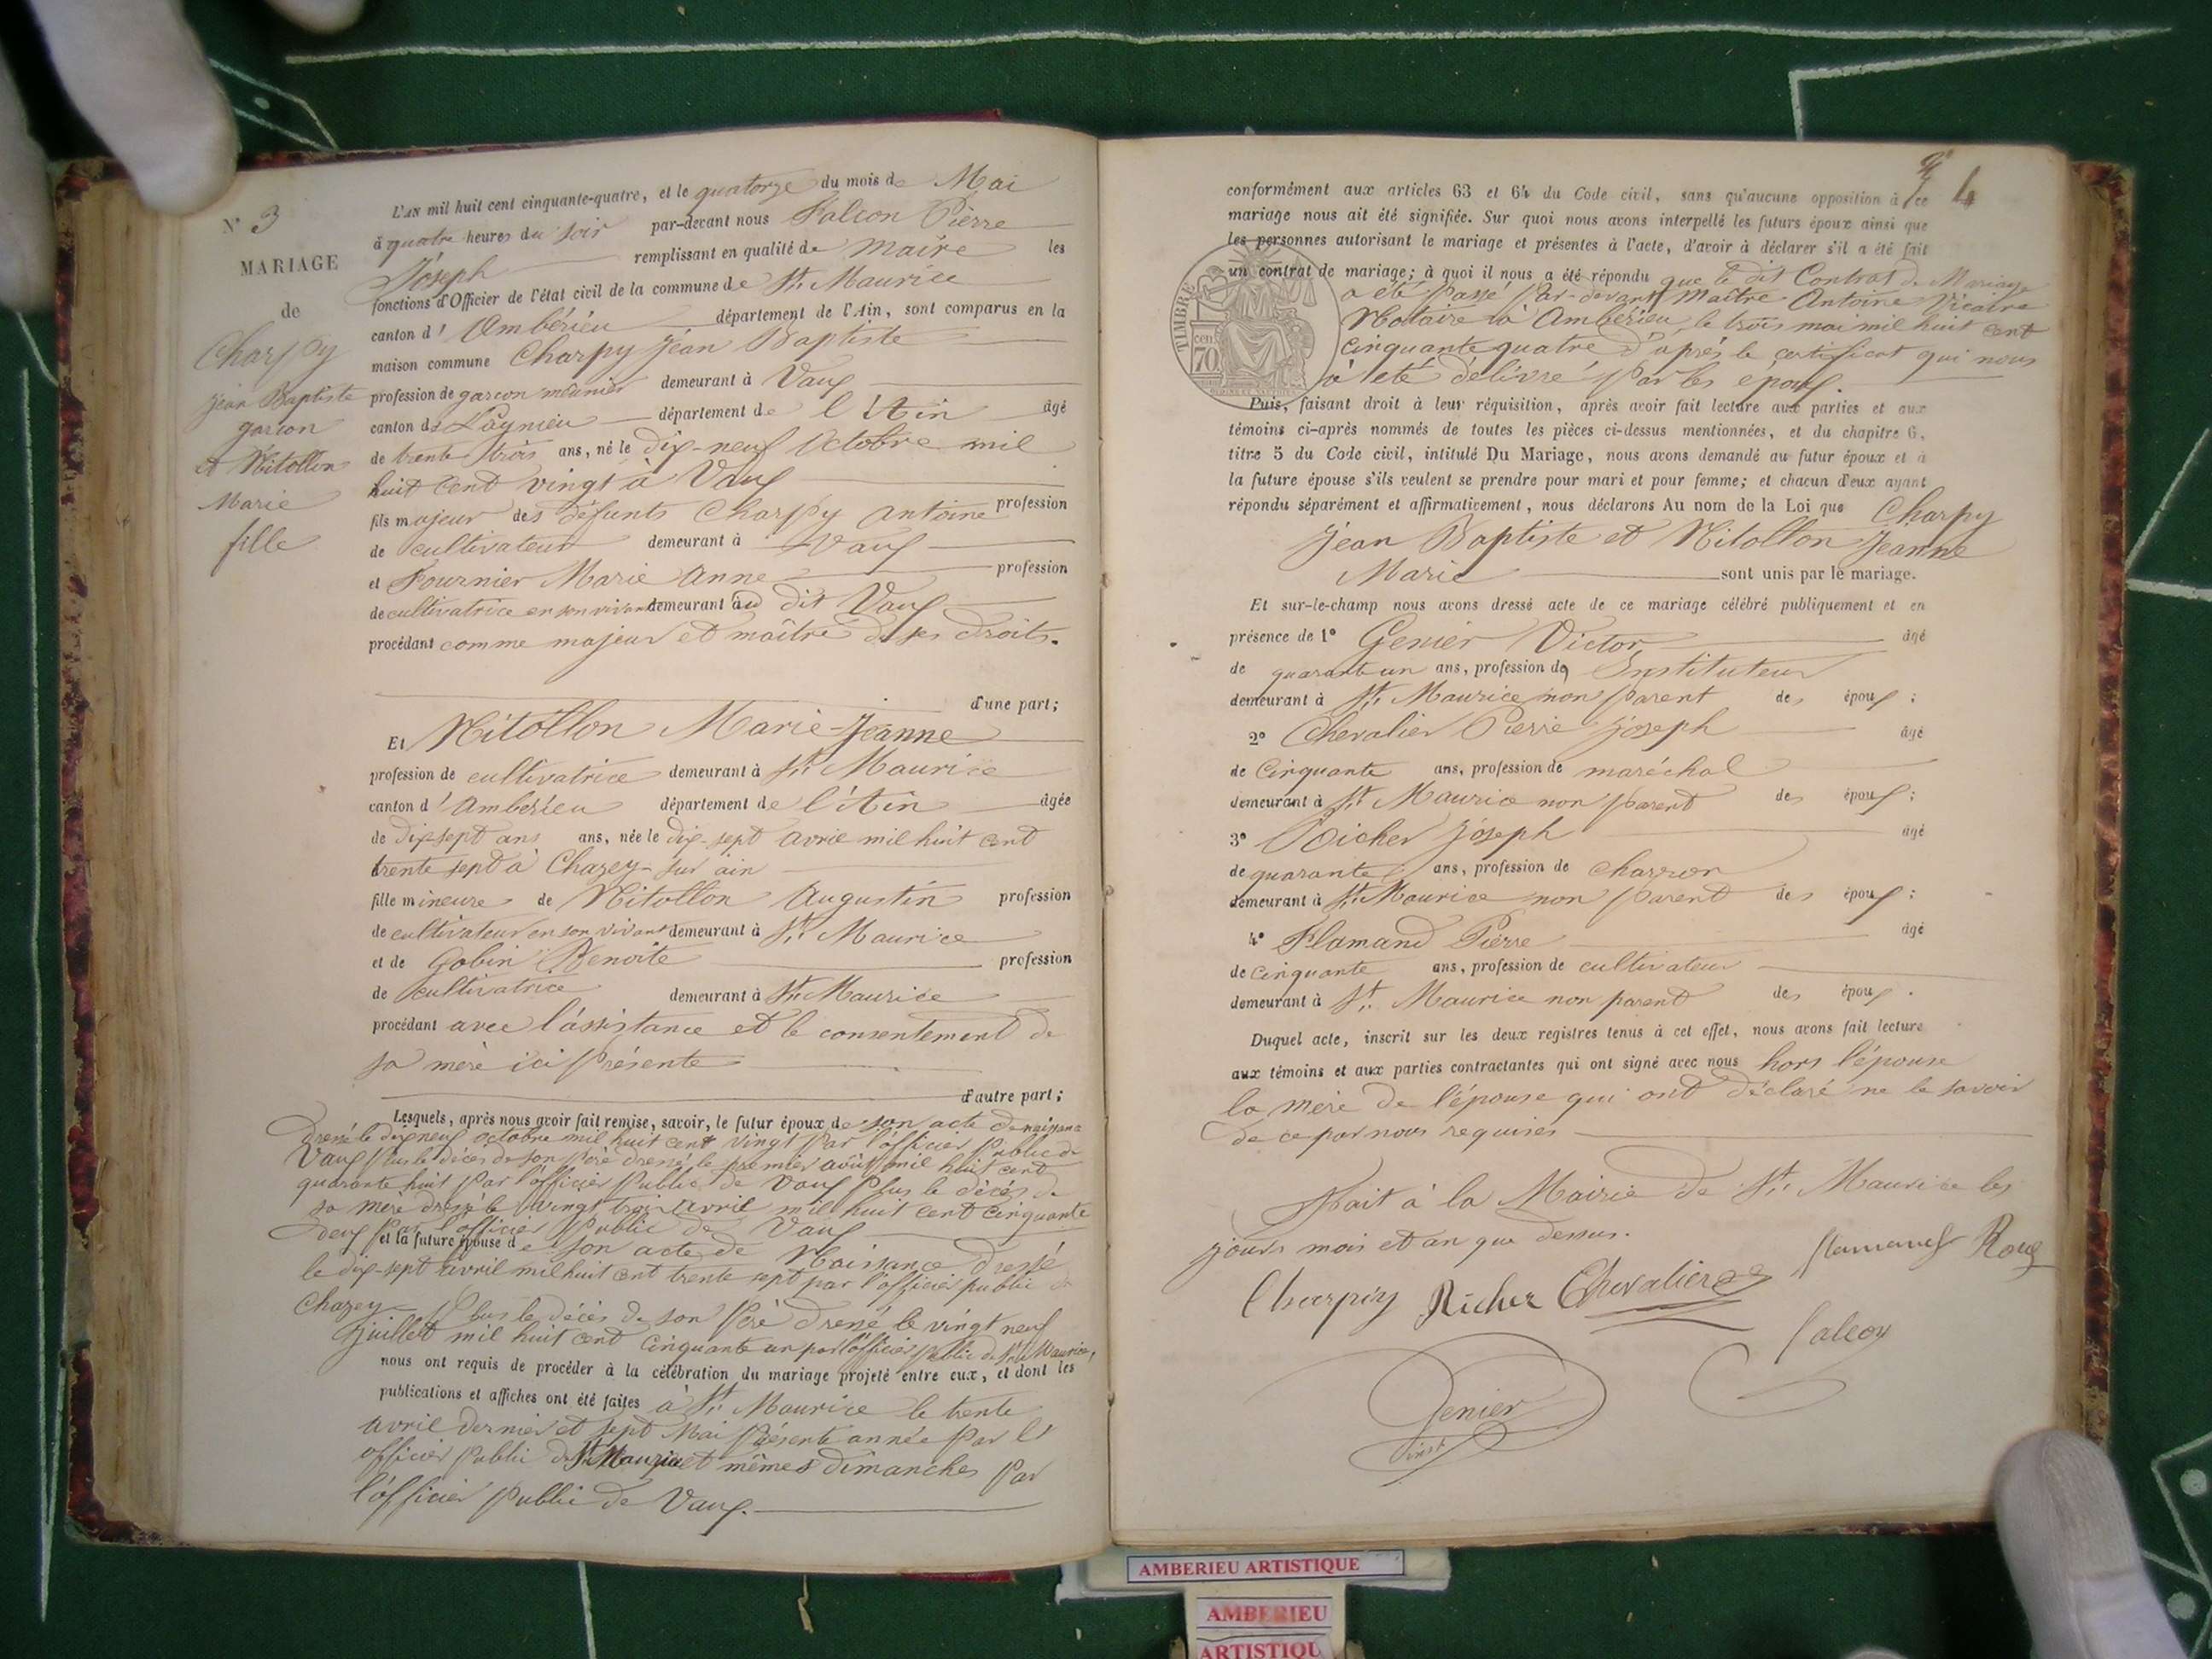 N° 3
MARIAGE
de
Charpy
Jean Baptiste
garçon
et Nitollon
Marie
fille
L'AN mil huit cent cinquante-quatre, et le quatorze du mois de Mai
à quatre heures du soir par-devant nous Falcon Pierre
Joseph remplissant en qualité de maire les
fonctions d'Officier de l'état civil de la commune de St. Maurice
canton d' Ambérieu département de l'Ain, sont comparus en la
maison commune Charpy Jean Baptiste
profession de garcon meûnier demeurant à Vaux
canton de Lagnieu département de l'Ain âgé
de trente trois ans, né le dix-neuf Octobre mil
huit cent vingt à Vaux
fils majeur des défunts Charpy Antoine profession
de cultivateur demeurant à Vaux
et Fournier Marie Anne profession
de cultivatrice en son vivant demeurant au dit Vaux
procédant comme majeur et maître de ses droits.
d'une part;
Et Nitollon Marie-Jeanne
profession de cultivatrice demeurant à St. Maurice
canton d' Ambérieu département de l'Ain âgée
de dix sept ans ans, née le dix-sept avril mil huit cent
trente sept à Chazey-sur ain
fille mineure de Nitollon Augustin profession
de cultivateur en son vivant demeurant à St. Maurice
et de Gobin Benoite profession
de cultivatrice demeurant à St. Maurice
procédant avec l'assistance et le consentement de
sa mère ici présente
d'autre part;
Lesquels, après nous avoir fait remise, savoir, le futur époux de son acte de naissance
dressé le dix neuf octobre mil huit cent vingt par l'officier public de
Vaux plus le décès de son père dressé le premier août mil huit cent
quarante huit par l'officier public de Vaux plus le décès de
sa mère dressé le vingt trois avril mil huit cent cinquante
deux par l'officier public de Vaux
et la future épouse de son acte de Naissance dressé
le dix-sept avril mil huit cent trente sept par l'officier public de
Chazey plus le décès de son Père dressé le vingt neuf
juillet mil huit cent cinquante un par l'officier public de St. Maurice,
nous ont requis de procéder à la célébration du mariage projeté entre eux, et dont les
publications et affiches ont été faites à St. Maurice le trente
avril dernier et sept Mai présente année par l'
officier public de St Maurice et mêmes dimanches par
l'officier public de Vaux.
4
conformément aux articles 63 et 64 du Code civil, sans qu'aucune opposition à ce
mariage nous ait été signifiée. Sur quoi nous avons interpellé les futurs époux ainsi que
les personnes autorisant le mariage et présentes à l'acte, d'avoir à déclarer s'il a été fait
un contrat de mariage; à quoi il nous a été répondu que le dit Contrat de Mariage
a été passé par-devant Maître Antoine
Notaire à Ambérieu, le trois mai mil huit cent
cinquante quatre d'après le certificat qui nous
à été délivré par les époux.
TIMBRE
cen
70
Puis, faisant droit à leur réquisition, après avoir fait lecture aux parties et aux
témoins ci-après nommés de toutes les pièces ci-dessus mentionnées, et du chapitre 6,
titre 5 du Code civil, intitulé Du Mariage, nous avons demandé au futur époux et à
la future épouse s'ils veulent se prendre pour mari et pour femme; et chacun d'eux ayant
répondu séparément et affirmativement, nous déclarons Au nom de la Loi que Charpy
Jean Baptiste et Nitollon Jeanne
Marie sont unis par le mariage.
Et sur-le-champ nous avons dressé acte de ce mariage célébré publiquement et en
présence de 1° Genier Victor âgé
de quarante un ans, profession de Instituteur
demeurant à St. Maurice non parent des époux;
2° Chevalier Pierre Joseph âgé
de Cinquante ans, profession de maréchal
demeurant à St Maurice non parent des époux;
3° Richer Joseph âgé
de quarante ans, profession de charron
demeurant à St. Maurice non parent des époux;
4° Flamand Pierre âgé
de Cinquante ans, profession de cultivateur
demeurant à St. Maurice non parent des époux.
Duquel acte, inscrit sur les deux registres tenus à cet effet, nous avons fait lecture
aux témoins et aux parties contractantes qui ont signé avec nous hors l'épouse
la mère de l'épouse qui ont déclaré ne le savoir
de ce par nous requises
Fait à la Mairie de St. Maurice les
jours mois et an que dessus.
flamand Roux
Charpiy Richer Chevalier
falcon
Genier
inst
AMBERIEU ARTISTIQUE
AMBERIEU
ARTISTIQU